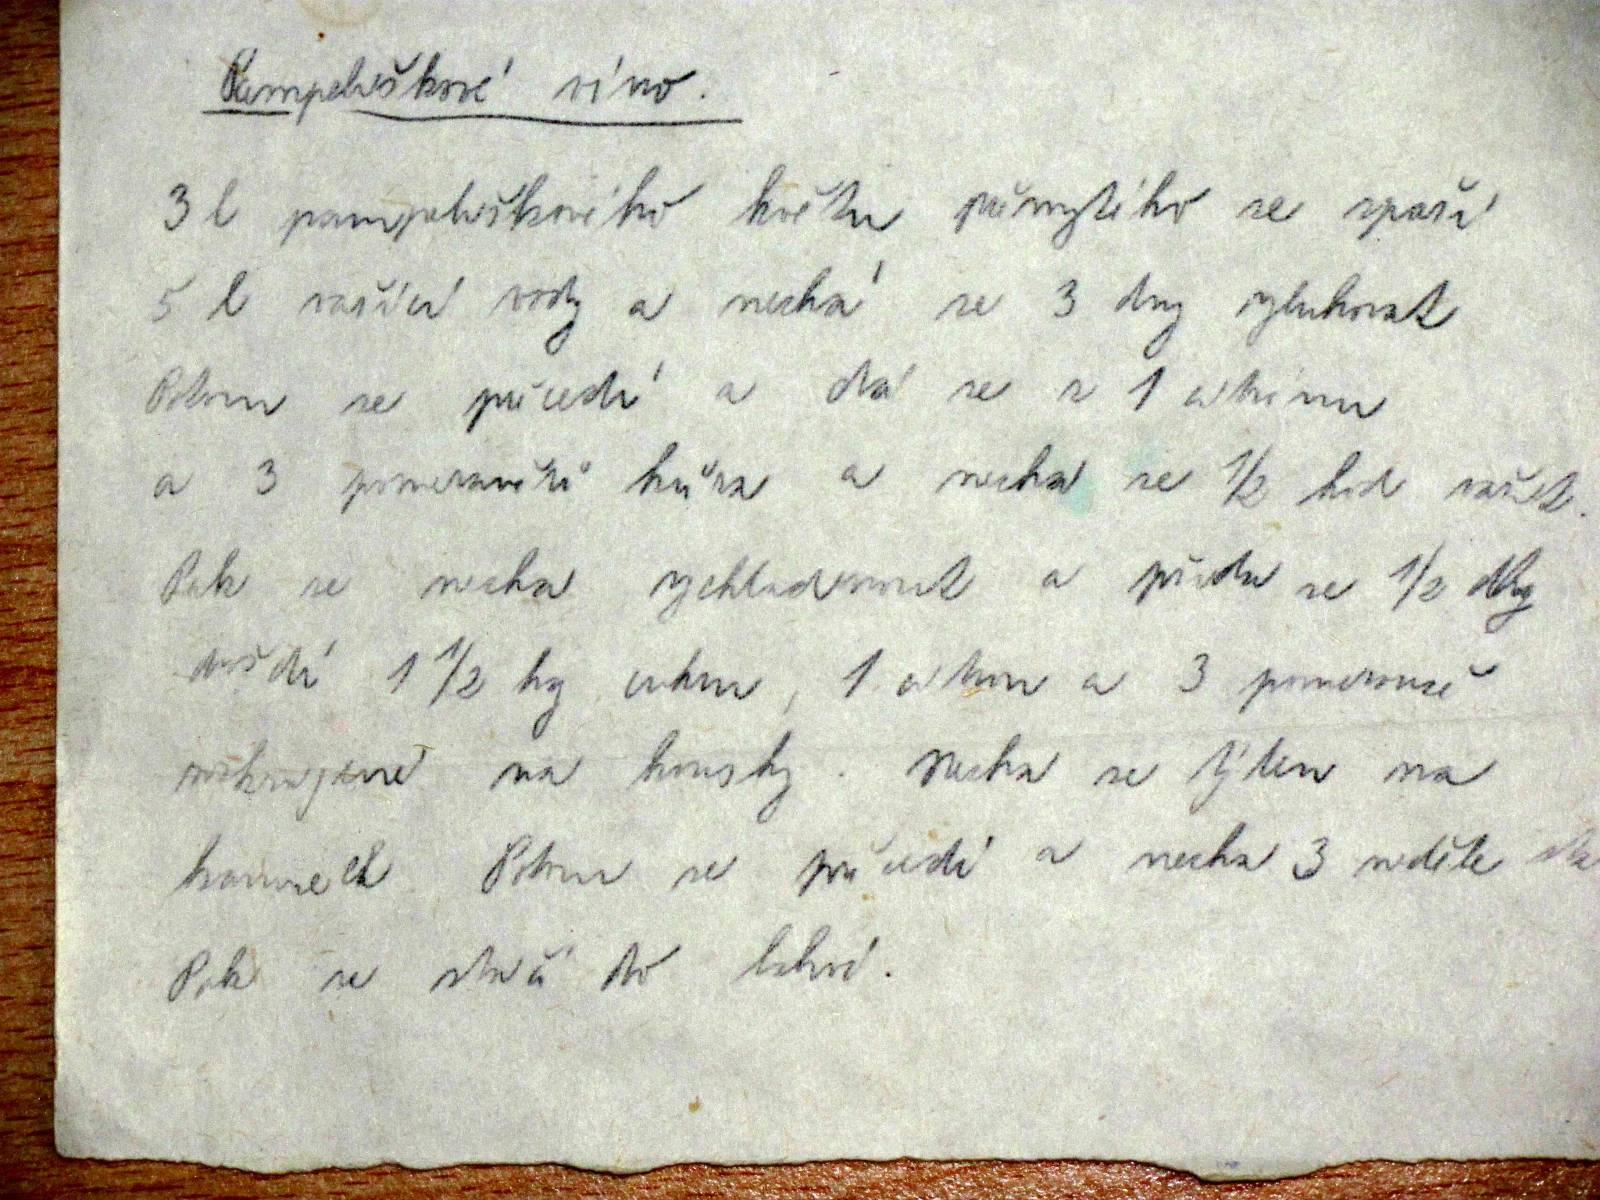 Pampeliškové víno.
3 l pampeliškového květu přemytého se spaří
5 l vařící vody a nechá se 3 dny vyluhovat
Potom se přecedí a dá se s 1 citrónu
a 3 pomerančů kůra a nechá se 1/2 hod vařit.
Pak se necha vychladnout a přida se 1/2 dkg
droždí 1 1/2 kg cukru, 1 citron a 3 pomeranče
rozkrajené na kousky. Necha se týden na
kamnech Potom se přecedí a necha 3 neděle
Pak se stáčí do lahví.